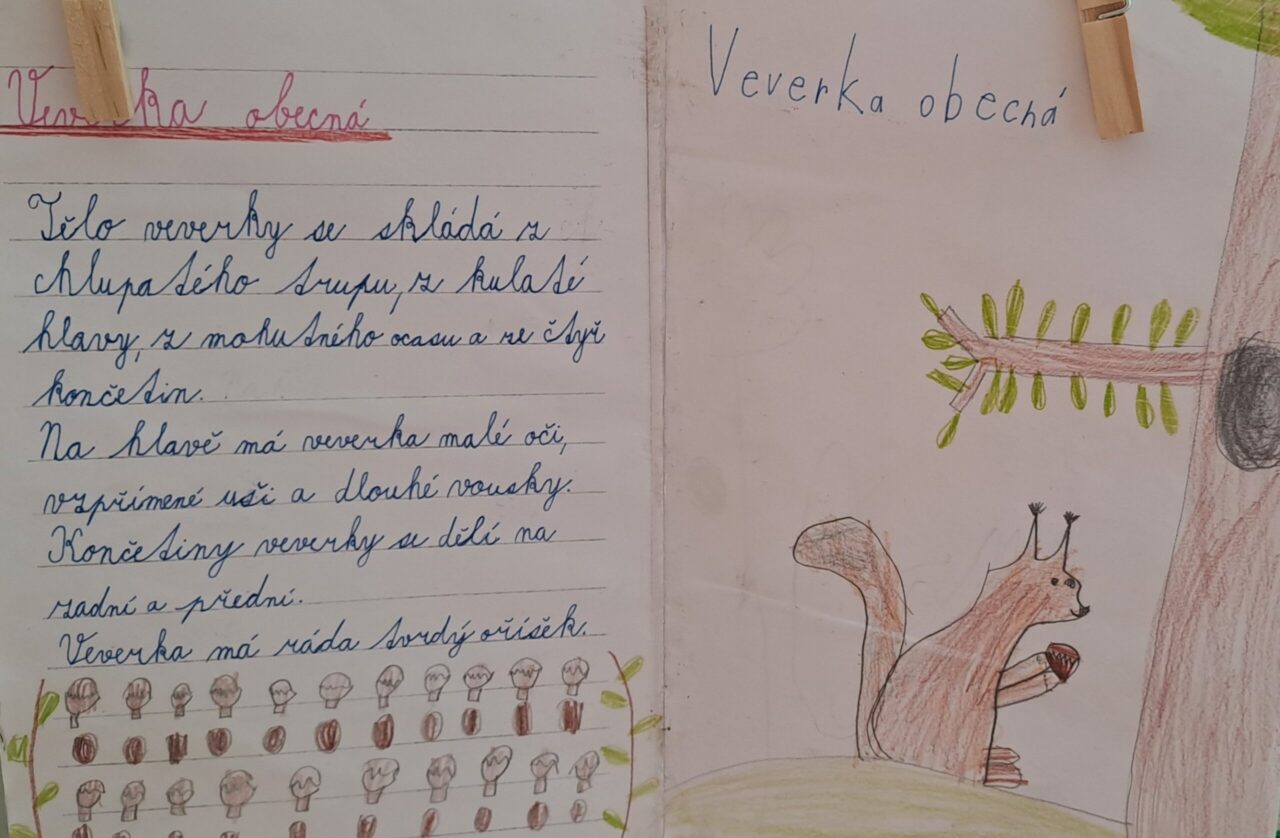 Veverka obecná
Tělo veverky se skládá z
chlupatého trupu, z kulaté
hlavy, z mohutného ocasu a ze čtyř
končetin.
Na hlavě má veverka malé oči,
vzpřímené uši a dlouhé vousky.
Končetiny veverky se dělí na
zadní a přední.
Veverka má ráda tvrdý oříšěk.
Veverka obecná